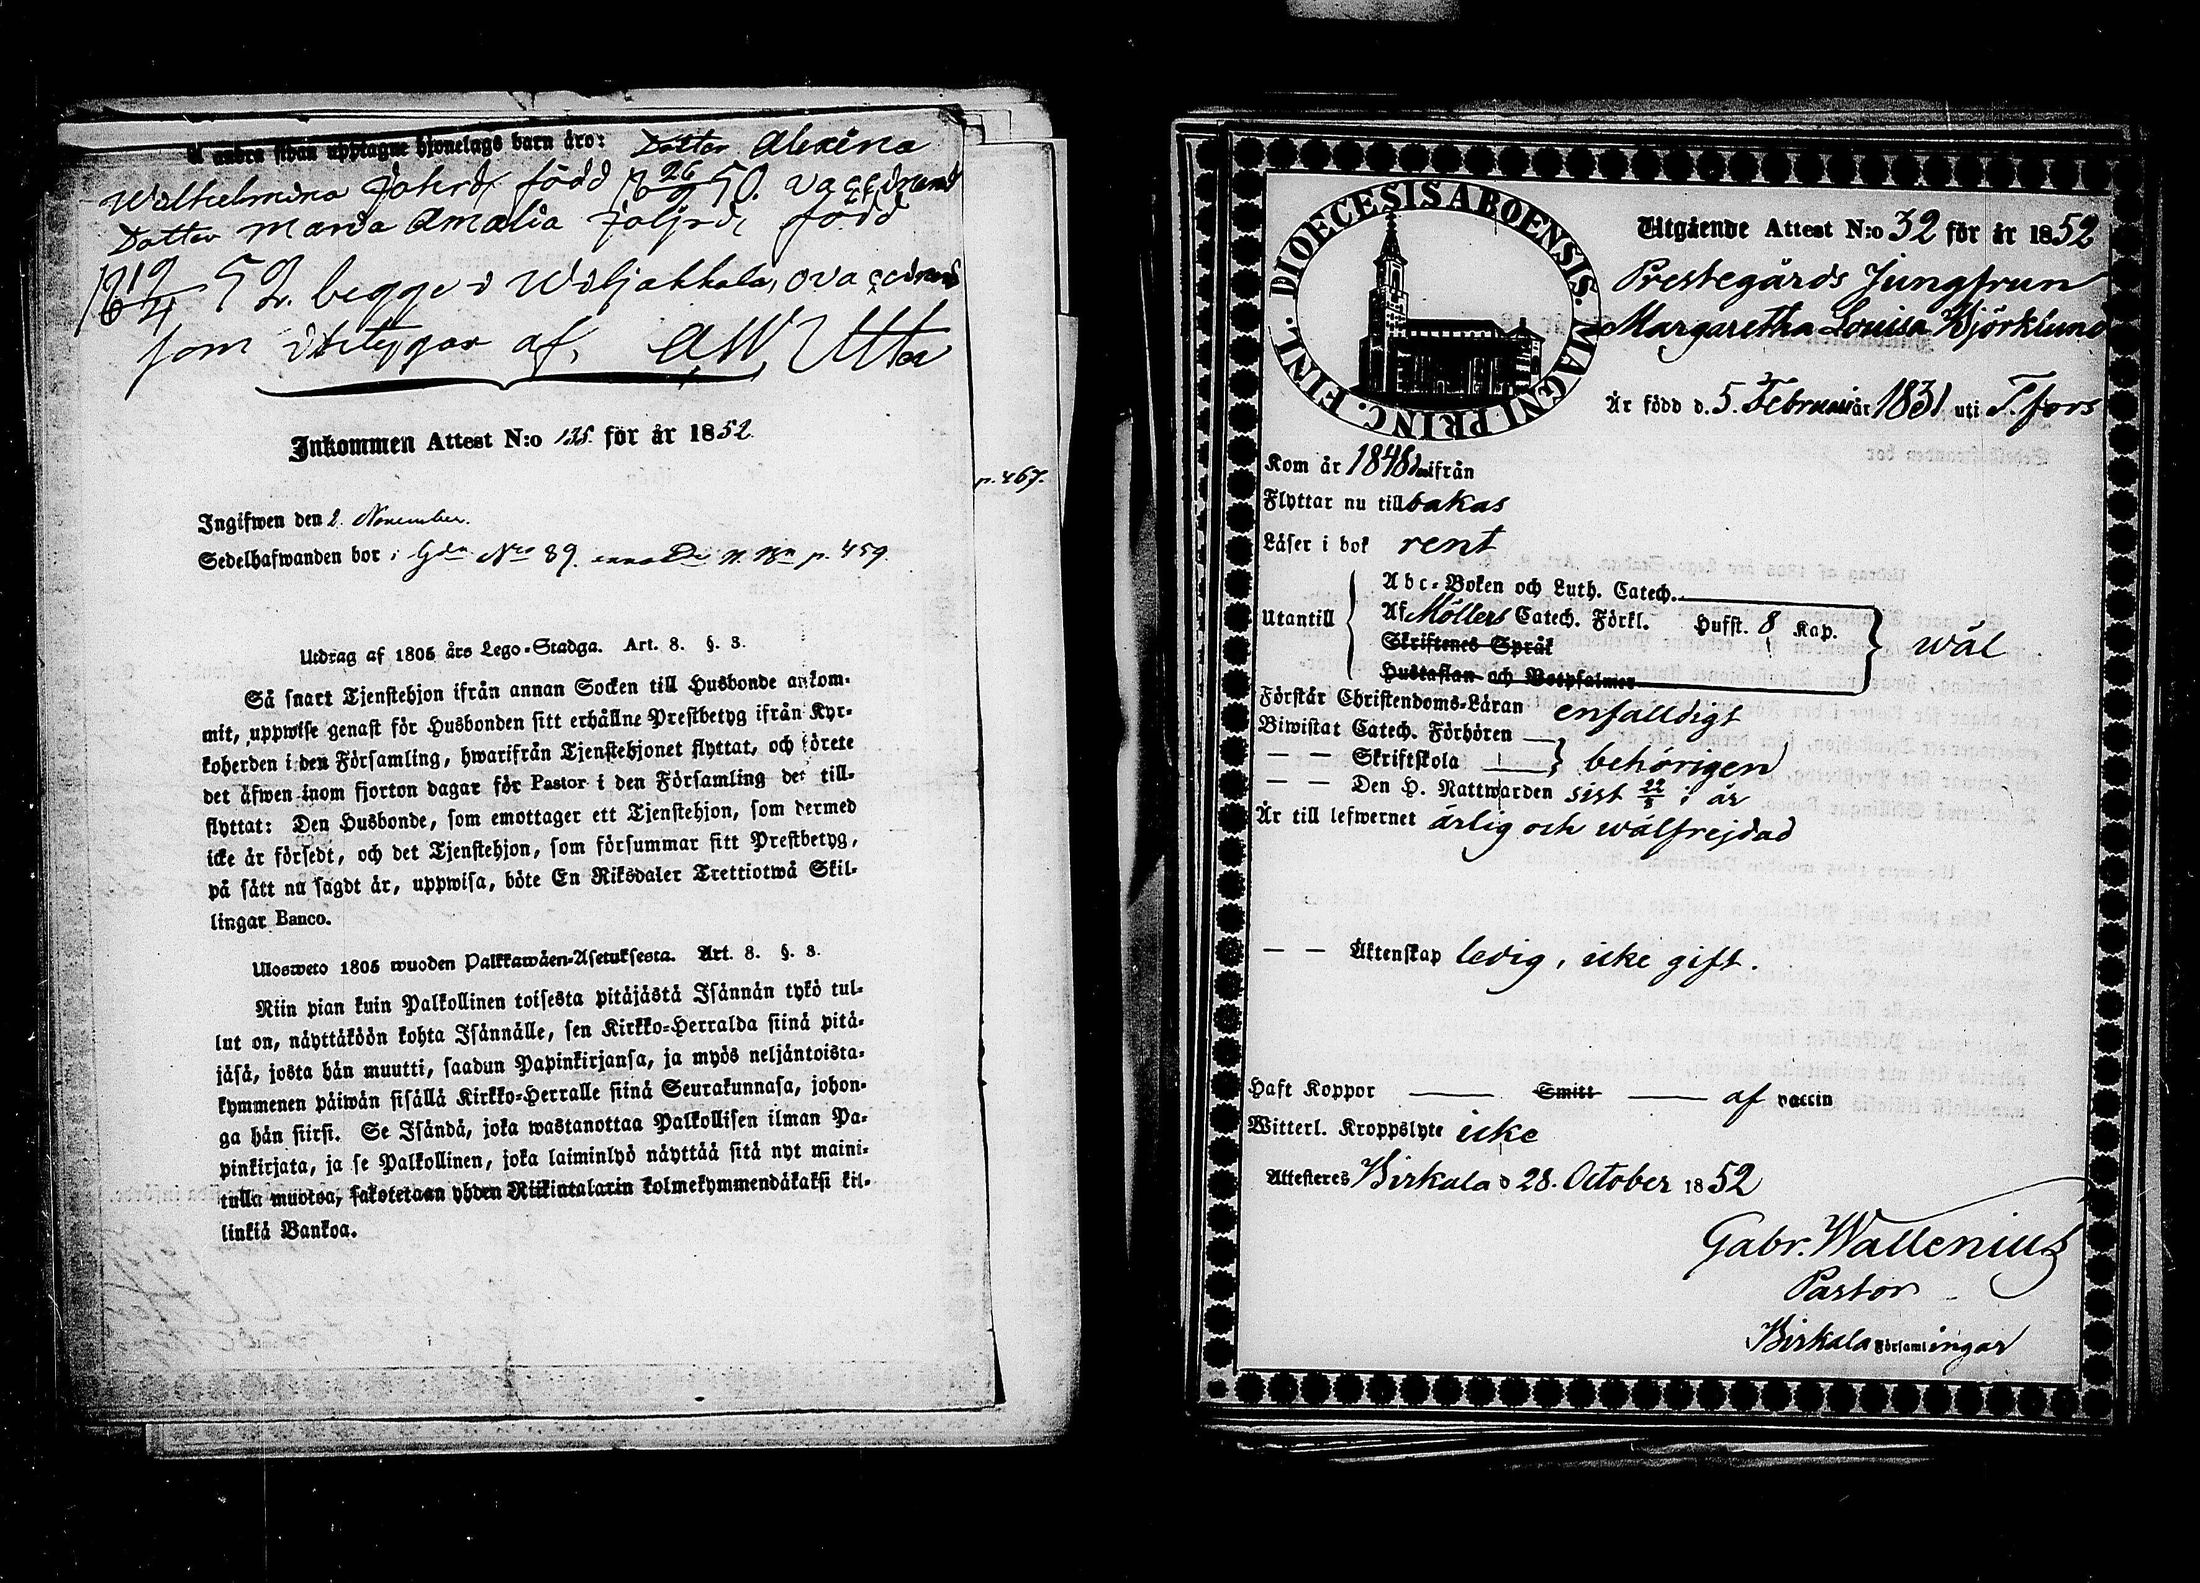 å andra sidan upptagne hjonelags barn äro: Dotter Alexina
Wilhelmina Johsdr född 18 26/9 50. vaccinerad
Dotter Maria Amalia följer, född
18 19/4 52. begge i Wiljakkala, ovaccinerad
som intygar af, AW Utter
Inkommen Attest N:o 135 för år 1852
Ingifwen den 2. November.
Sedelhafwanden bor i Gdn Nro 89. p. 459.
p. 467.
Utdrag af 1805 års Lego-Stadga. Art. 8. §. 3.
Så snart Tjenstehjon ifrån annan Socken till Husbonde ankom-
mit, uppwise genast för Husbonden sitt erhållne Prestbetyg ifrån Kyr-
koherden i den Församling, hwarifrån Tjenstehjonet flyttat, och förete
det äfwen inom fjorton dagar för Pastor i den Församling det till-
flyttat: Den Husbonde, som emottager ett Tjenstehjon, som dermed
icke är försedt, och det Tjenstehjon, som försummar sitt Prestbetyg,
på sätt nu sagdt är, uppwisa, böte En Riksdaler Trettiotwå Skil-
lingar Banco.
Uloswето 1805 wuoden Palkkawäen-Asetuksesta. Art. 8. §. 3.
Niin pian kuin Palkollinen toisesta pitäjästä Isännän tykö tul-
lut on, näyttäköön kohta Isännälle, sen Kirkko-Herralda siinä pitä-
jäsä, josta hän muutti, saadun Papinkirjansa, ja myös neljäntoista-
kymmenen päiwän sisällä Kirkko-Herralle siinä Seurakunnasa, johon-
ga hän siirsi. Se Isändä, joka wastanottaa Palkollisen ilman Pa-
pinkirjata, ja se Palkollinen, joka laiminlyö näyttää sitä nyt maini-
tulla muotoa, sakotetaan yhden Riikintalarin kolmekymmendäkaksi kil-
linkiä Bankoa.
DIOECESIS ABOENSIS. MAGNI PRINC. FINL.
Utgående Attest N:o 32 för år 1852
Prestegårds Jungfrun
Margaretha Louisa Björklund
Är född d. 5. Februari år 1831 uti T.fors
Kom år 1848 därifrån
Flyttar nu till bakas
Läser i bok rent
Utantill
Abc-Boken och Luth. Catech.
Af Möllers Catech. Förkl. Hufst. 8 Kap.
Skriftenes Språk
Hustaflan och Botpsalmer
wäl
Förstår Christendoms-Läran enfalldigt
Biwistat Catech. Förhören
— — Skriftskola behörigen
— — Den H. Nattwarden sist 22/8 i år
Är till lefwernet ärlig och wälfrejdad
— — Äktenskap ledig, icke gift.
Haft Koppor — Smitt — af vaccin
Witterl. Kroppslyte icke
Attesteres Birkala d 28. October 1852
Gabr. Wallenius
Pastor
Birkala Församlingar